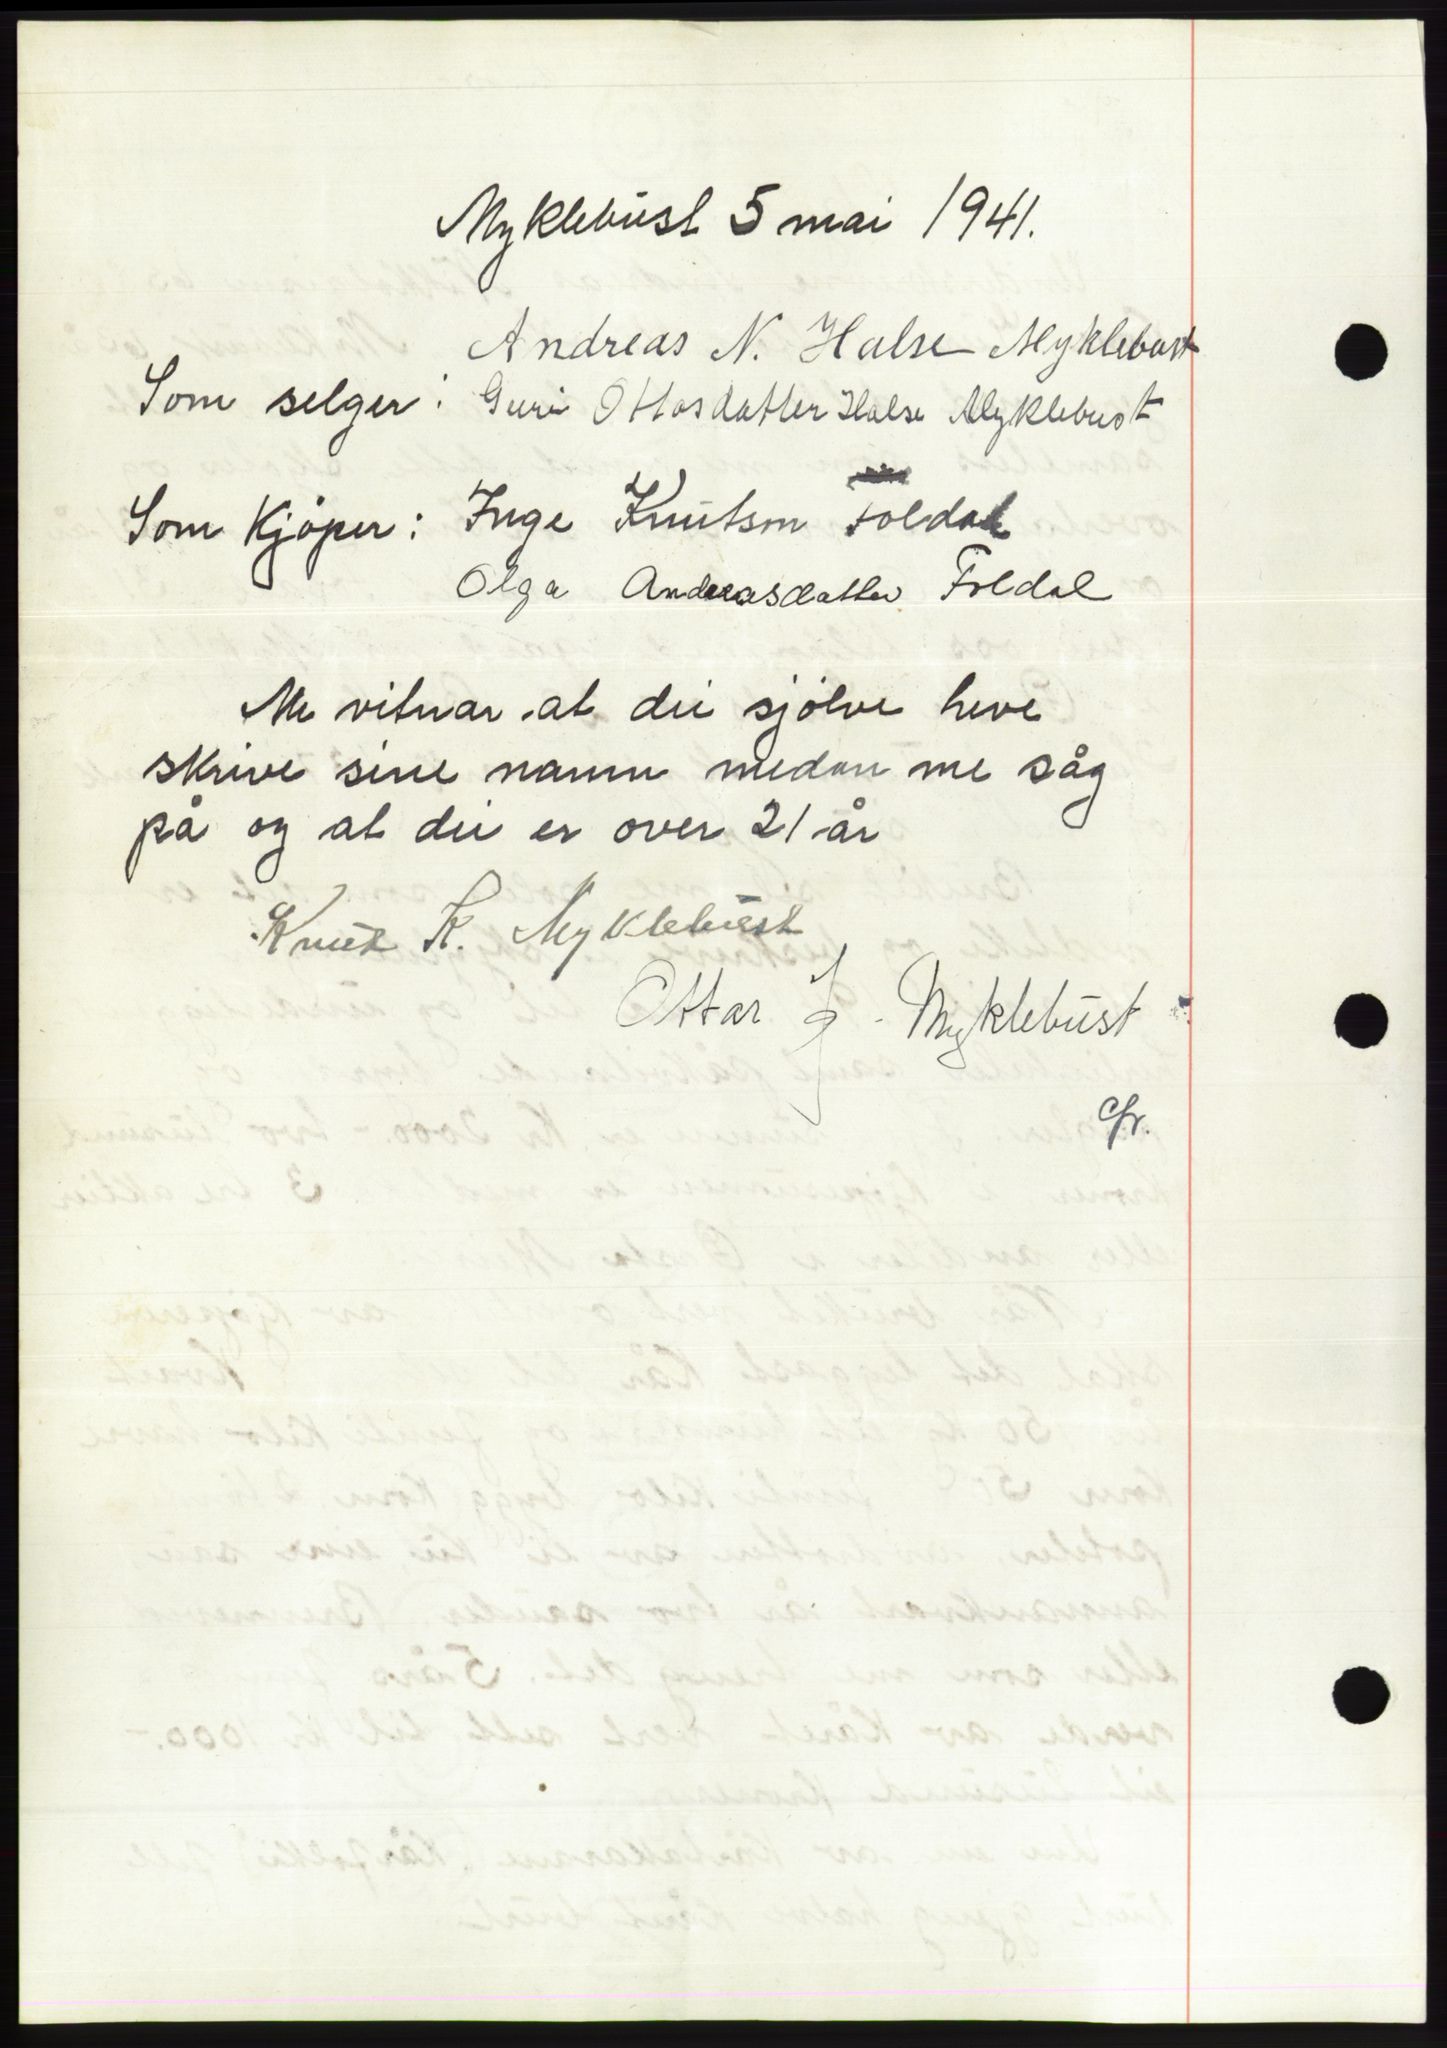 Myklebust 5 mai 1941.
Andreas N. Halse Myklebust
Som selger: Guri Ottosdatter Halse Myklebust
Som Kjöper: Inge Knutson Foldal
Olga Andreasdatter Foldal
Me vitnar at dei sjölve heve
skrive sine namn medan me såg
på og at dei er over 21 år
Knut K. Myklebust
Ottar J. Myklebust